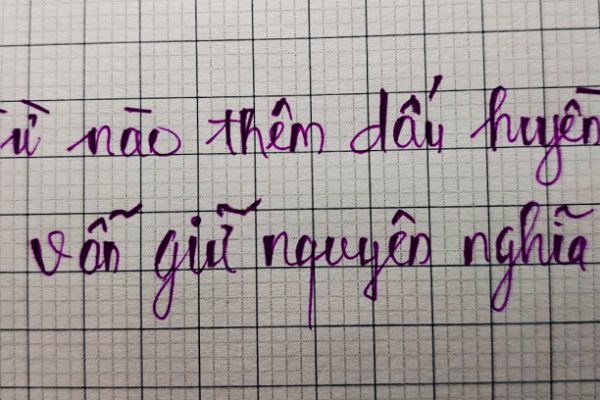 Từ nào thêm dấu huyền
vẫn giữ nguyên nghĩa